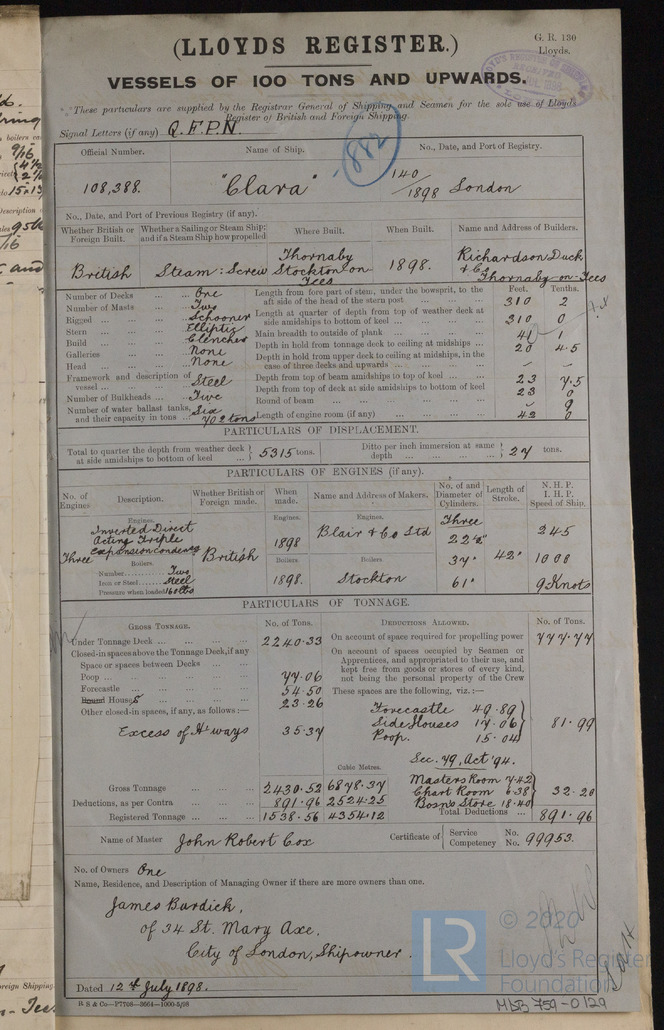 G. R. 130
Lloyds.
(LLOYDS REGISTER.)
VESSELS OF 100 TONS AND UPWARDS.
These particulars are supplied by the Registrar General of Shipping and Seamen for the sole use of Lloyds
Register of British and Foreign Shipping.
Signal Letters (if any) Q.F.P.N.
882
Official Number. Name of Ship. No., Date, and Port of Registry.
108,388. "Clara" 140/1898 London
No., Date, and Port of Previous Registry (if any).
Whether British or Foreign Built. Whether a Sailing or Steam Ship; and if a Steam Ship how propelled Where Built. When Built. Name and Address of Builders.
British Steam: Screw Thornaby Stockton-on-Tees 1898. Richardson Duck & Co Thornaby-on-Tees
Feet. Tenths.
Number of Decks ... ... One
Number of Masts ... ... Two
Rigged ... ... Schooner
Stern ... ... Elliptic
Build ... ... Clencher
Galleries ... ... None
Head ... ... None
Framework and description of vessel ... Steel
Number of Bulkheads ... Five
Number of water ballast tanks, and their capacity in tons ... Six 702 tons
Length from fore part of stem, under the bowsprit, to the aft side of the head of the stern post ... 310 2
Length at quarter of depth from top of weather deck at side amidships to bottom of keel ... 310 0
Main breadth to outside of plank ... 41 1
Depth in hold from tonnage deck to ceiling at midships ... 20 4.5
Depth in hold from upper deck to ceiling at midships, in the case of three decks and upwards ... - -
Depth from top of beam amidships to top of keel ... 23 7.5
Depth from top of deck at side amidships to bottom of keel 23 0
Round of beam ... - 9
Length of engine room (if any) ... 42 0
PARTICULARS OF DISPLACEMENT.
Total to quarter the depth from weather deck at side amidships to bottom of keel ... 5315 tons. Ditto per inch immersion at same depth ... 27 tons.
PARTICULARS OF ENGINES (if any).
No. of Engines Description. Whether British or Foreign made. When made. Name and Address of Makers. No. and Diameter of Cylinders. Length of Stroke. N.H.P. I.H.P. Speed of Ship.
Engines. Engines. Engines.
Three Inverted Direct Acting Triple expansion condensing British 1898 Blair & Co Ltd Three 22½" 42" 245
Boilers. Boilers Boilers
Number ... Two 37" 1000
Iron or Steel ... Steel 1898. Stockton 61" 9 Knots
Pressure when loaded 160 lbs
PARTICULARS OF TONNAGE.
GROSS TONNAGE. No. of Tons. DEDUCTIONS ALLOWED. No. of Tons.
Under Tonnage Deck ... 2240.33 On account of space required for propelling power 777.77
Closed-in spaces above the Tonnage Deck, if any
Space or spaces between Decks ...
Poop ... 77.06
Forecastle ... 54.50
Round Houses 23.26
Other closed-in spaces, if any, as follows:—
Excess of H'ways 35.37
On account of spaces occupied by Seamen or Apprentices, and appropriated to their use, and kept free from goods or stores of every kind, not being the personal property of the Crew
These spaces are the following, viz.:—
Forecastle 49.89
Side Houses 17.06 81.99
Poop. 15.04
Sec. 79, Act '94.
Cubic Metres.
Masters Room 7.42
Chart Room 6.38 32.20
Bosn's Store 18.40
Gross Tonnage ... 2430.52 6878.37
Deductions, as per Contra ... 891.96 2524.25
Total Deductions ... 891.96
Registered Tonnage ... 1538.56 4354.12
Name of Master John Robert Cox Certificate of Service No. Competency No. 99953.
No. of Owners One
Name, Residence, and Description of Managing Owner if there are more owners than one.
James Burdick,
of 34 St. Mary Axe,
City of London, Shipowner.
Dated 12th July 1898.
B. S & Co—P7708—3664—1000-5/98
LR
© 2020
Lloyd's Register
Foundation
MLB 759-0129